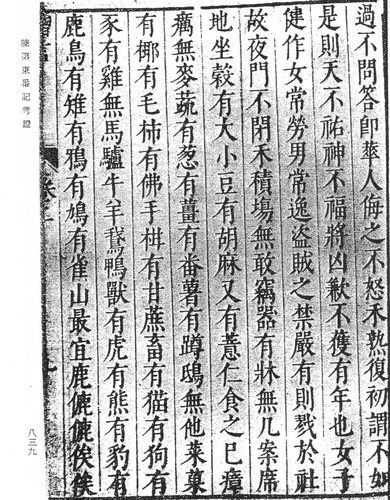 過不問答即華人侮之不怒禾熟復初謂不如
是則天不祐神不福將凶歉不獲有年也女子
健作女常勞男常逸盜賊之禁嚴有則戮於社
故夜門不閉禾積場無敢竊器有牀無几案席
地坐穀有大小豆有胡麻又有薏仁食之已瘴
癘無麥蔬有葱有薑有番薯有蹲鴟無他菜菓
有椰有毛柿有佛手柑有甘蔗畜有猫有狗有
豕有雞無馬驢牛羊鵞鴨獸有虎有熊有豹有
鹿鳥有雉有鴉有鳩有雀山最宜鹿儦儦俟俟
陳第東番記考證
八三九